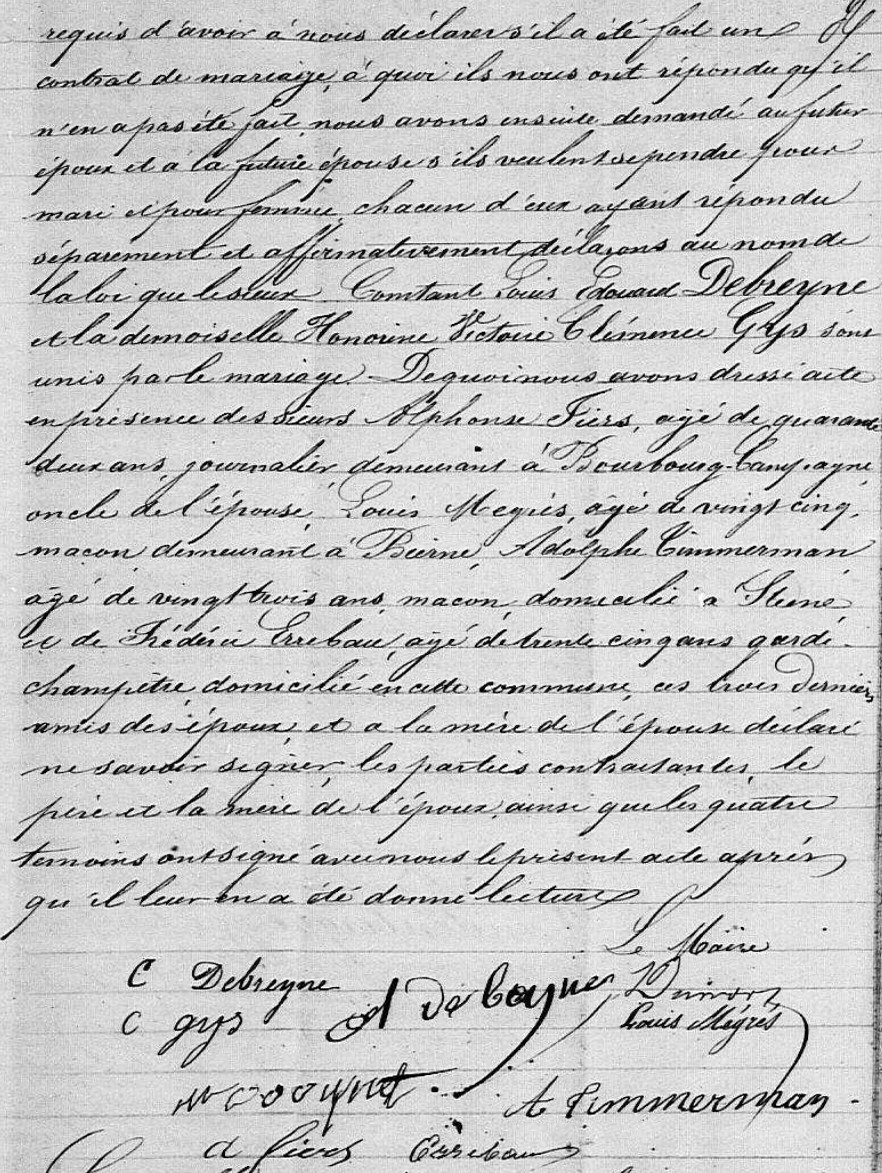 requis d'avoir à nous déclarer s'il a été fait un
contrat de mariage, à quoi ils nous ont répondu qu'il
n'en a pas été fait, nous avons ensuite demandé au futur
époux et à la future épouse s'ils veulent se pendre pour
mari et pour femme, chacun d'eux ayant répondu
séparement et affirmativement, déclarons au nom de
la loi que le sieur Constant Louis Edouard Debreyne
et la demoiselle Honorine Victoire Clémence Gys sont
unis par le mariage. De quoi nous avons dressé acte
en présence des sieurs Alphonse Fiers, agé de quarante
deux ans, journalier, demeurant à Bourbourg-Campagne
oncle de l'épouse, Louis Megrés, âgé de vingt cinq,
maçon demeurant à Bierne, Adolphe Timmerman
âgé de vingt trois ans, macon, domicilié a Steene
et de Frédéric Errebau, agé de trente cinq ans garde-
champêtre, domicilié en cette commune, ces trois derniers
amis des époux, et a la mère de l'épouse déclaré
ne savoir signer, les parties contractantes, le
père et la mère de l'époux, ainsi que les quatre
temoins ont signé avec nous le présent acte après
qu'il leur en a été donné lecture
Le Maire
C Debreyne
C gys
A Debreyne
Louis Mégrés
A Timmerman
a fiers Errebau